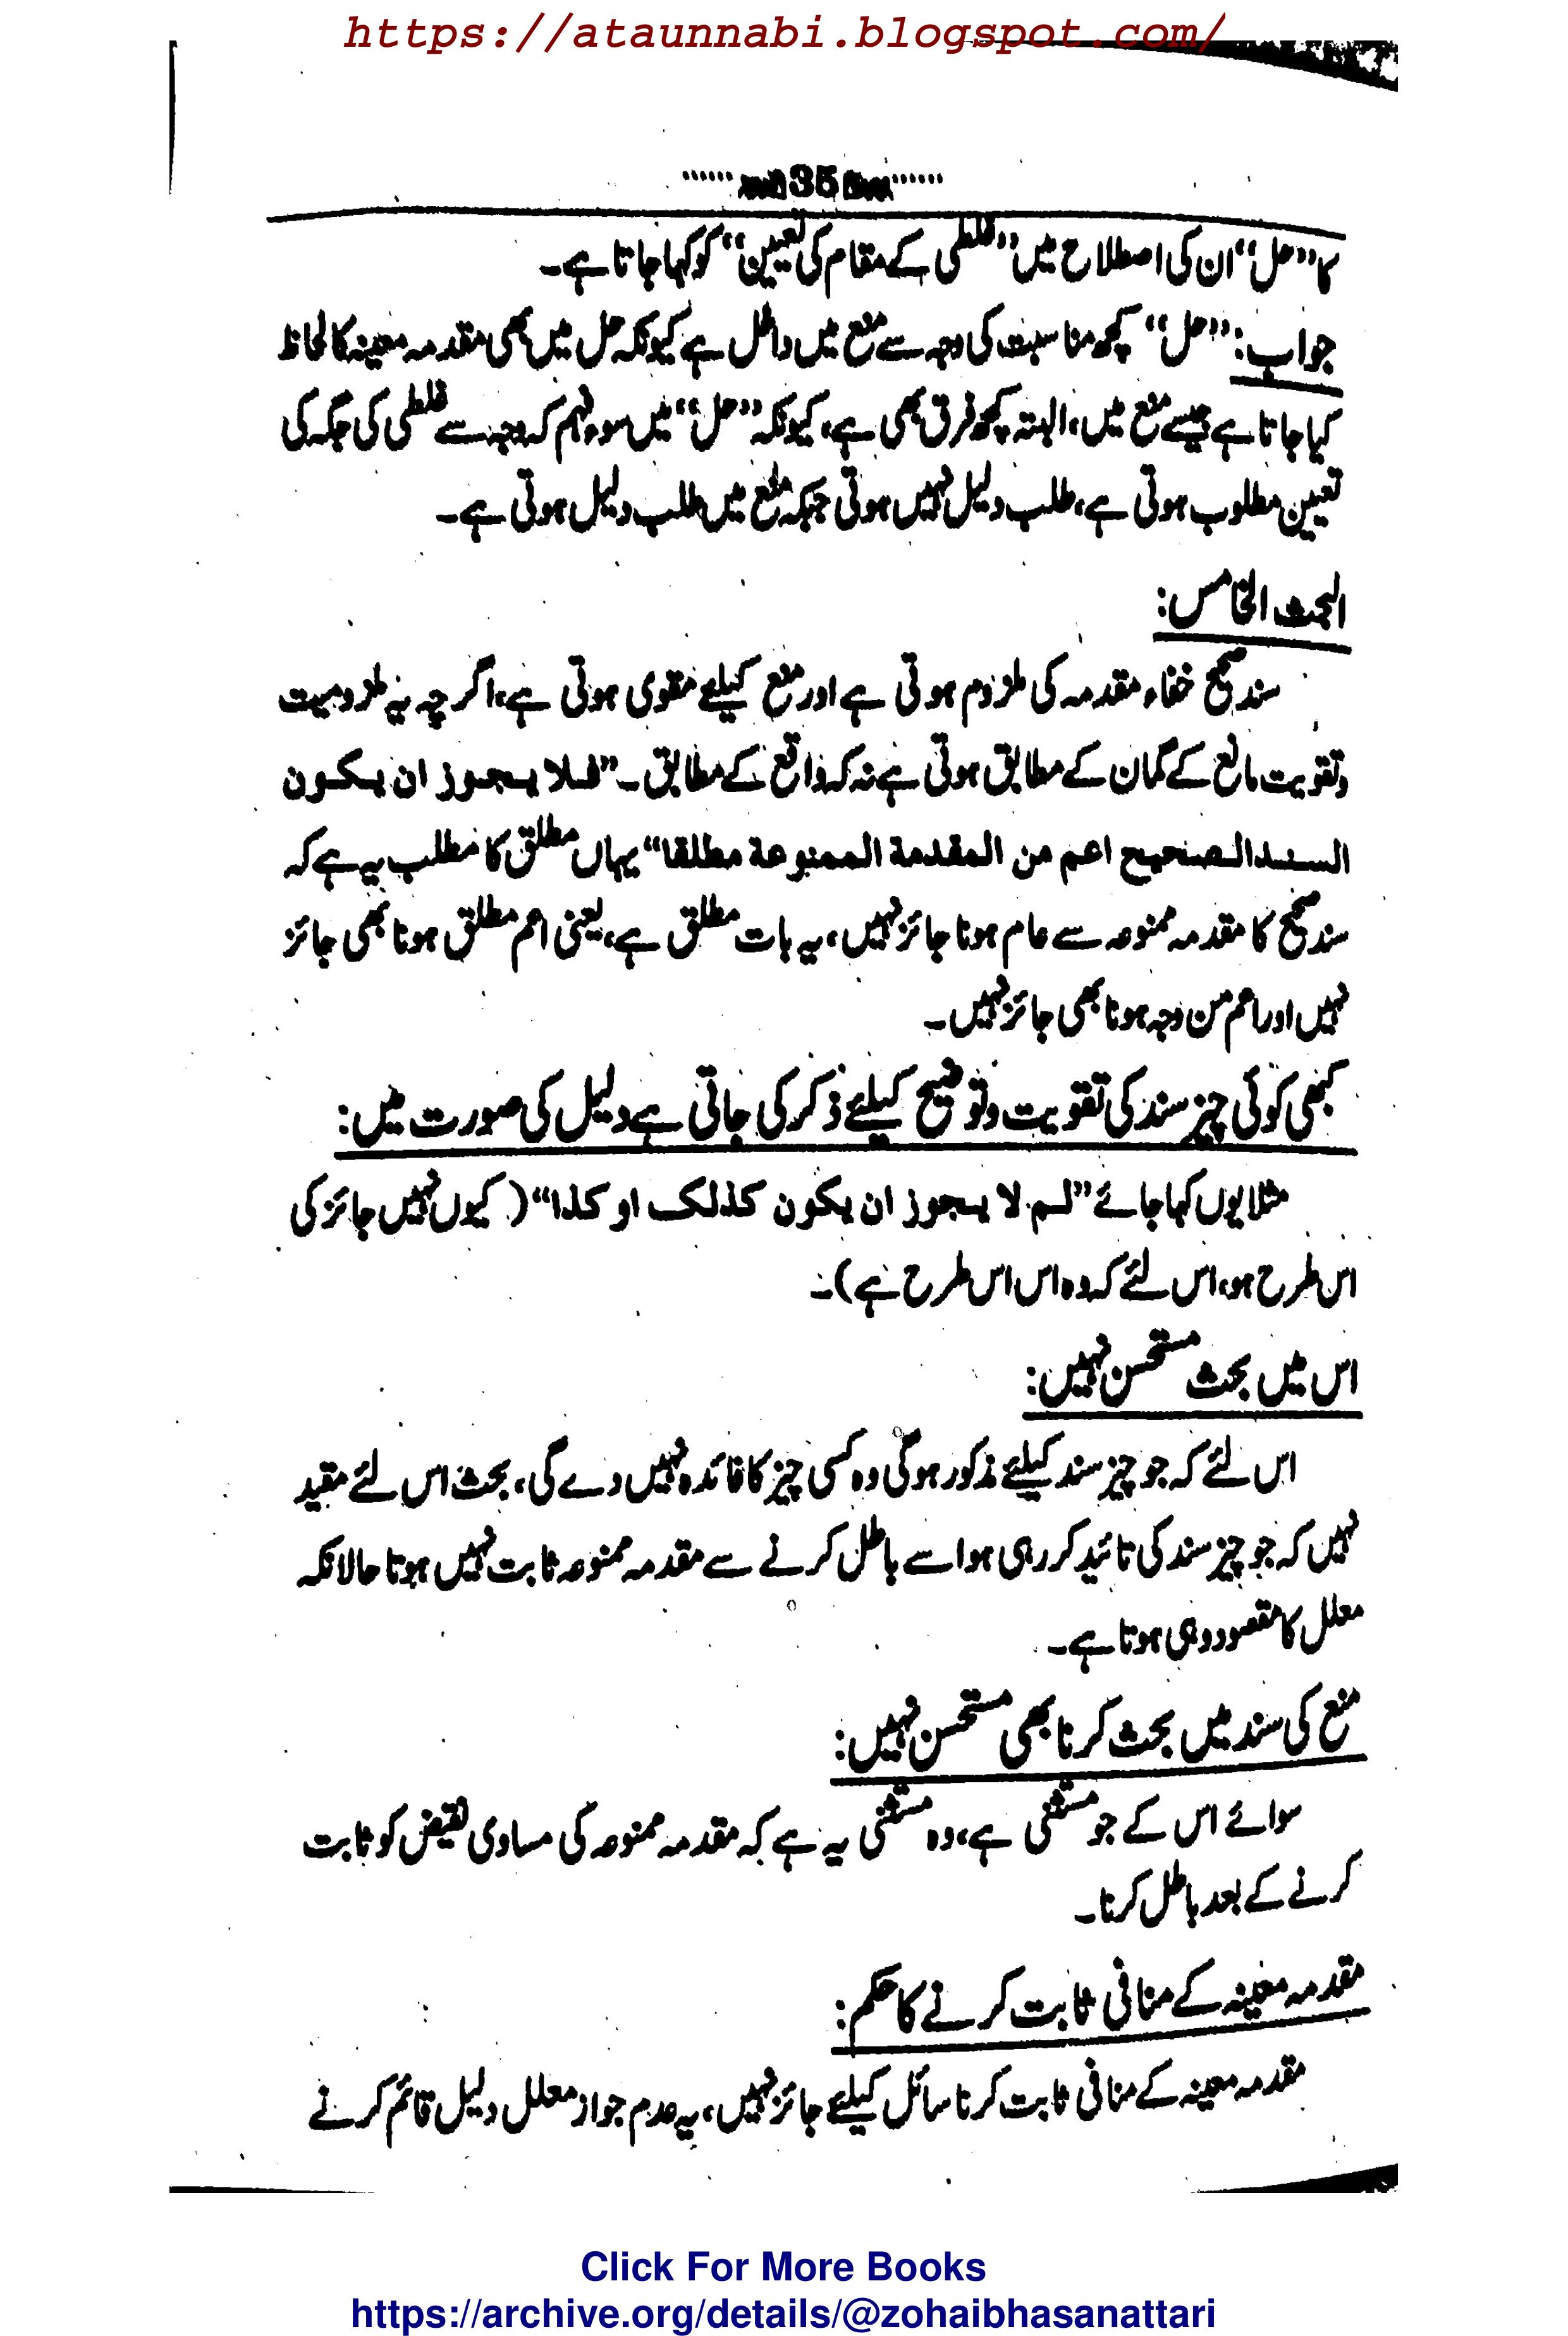 https://ataunnabi.blogspot.com/
35
کا ’’حل‘‘ ان کی اصطلاح میں ’’غلطی کے مقام کی تعیین‘‘ کو کہا جاتا ہے۔
جواب: ’’حل‘‘ کچھ مناسبت کی وجہ سے منع میں داخل ہے کیونکہ حل میں بھی مقدمہ معینہ کا لحاظ
کیا جاتا ہے جیسے منع میں، البتہ کچھ فرق بھی ہے، کیونکہ ’’حل‘‘ میں سوء فہم کہ وجہ سے غلطی کی جگہ کی
تعیین مطلوب ہوتی ہے، طلب دلیل نہیں ہوتی جبکہ منع میں طلب دلیل ہوتی ہے۔
البحث الخامس:
سند صحیح خفاء مقدمہ کی ملزوم ہوتی ہے اور منع کیلئے مقوی ہوتی ہے، اگرچہ یہ ملزومیت
وتقویت مانع کے گمان کے مطابق ہوتی ہے نہ کہ واقع کے مطابق۔ ’’فلا یجوز ان یکون
السند الصحیح اعم من المقدمة الممنوعة مطلقا‘‘ یہاں مطلق کا مطلب یہ ہے کہ
سند صحیح کا مقدمہ ممنوعہ سے عام ہونا جائز نہیں، یہ بات مطلق ہے، یعنی اعم مطلق ہونا بھی جائز
نہیں اور اعم من وجہ ہونا بھی جائز نہیں۔
کبھی کوئی چیز سند کی تقویت وتوضیح کیلئے ذکر کی جاتی ہے دلیل کی صورت میں:
مثلا یوں کہا جائے ’’لم لا یجوز ان یکون کذلک او کذا‘‘ (کیوں نہیں جائز کی
اس طرح ہو، اس لئے کہ وہ اس اس طرح ہے)۔
اس میں بحث مستحسن نہیں:
اس لئے کہ جو چیز سند کیلئے مذکور ہوگی وہ کسی چیز کا فائدہ نہیں دے گی، بحث اس لئے مقید
نہیں کہ جو چیز سند کی تائید کر رہی ہو اسے باطل کرنے سے مقدمہ ممنوعہ ثابت نہیں ہوتا حالانکہ
معلل کا مقصود وہی ہوتا ہے۔
منع کی سند میں بحث کرنا بھی مستحسن نہیں:
سوائے اس کے جو مستثنٰی ہے، وہ مستثنٰی یہ ہے کہ مقدمہ ممنوعہ کی مساوی نقیض کو ثابت
کرنے کے بعد باطل کرنا۔
مقدمہ معینہ کے منافی ثابت کرنے کا حکم:
مقدمہ معینہ کے منافی ثابت کرنا سائل کیلئے جائز نہیں، یہ عدم جواز معلل دلیل قائم کرنے
Click For More Books
https://archive.org/details/@zohaibhasanattari